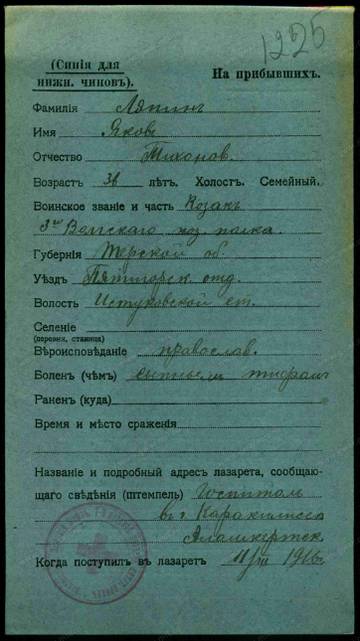 1225
(Синія для
нижн. чиновъ).
На прибывшихъ.
Фамилія Ляпинъ
Имя Яковъ
Отчество Тихонов.
Возрастъ 36 лѣтъ. Холостъ. Семейный.
Воинское званіе и часть Козакъ
3го Волгскаго коз. полка.
Губернія Терской об.
Уѣздъ Пятигорск. отд.
Волость ст.
Селеніе
(деревня, станица)
Вѣроисповѣданіе православ.
Боленъ (чѣмъ) сыпным тифомъ
Раненъ (куда)
Время и мѣсто сраженія
Названіе и подробный адресъ лазарета, сообщаю-
щаго свѣдѣнія (штемпель) Госпиталь
в г. Каракилиссa
Алашкертск.
Когда поступилъ въ лазаретъ 1916г.